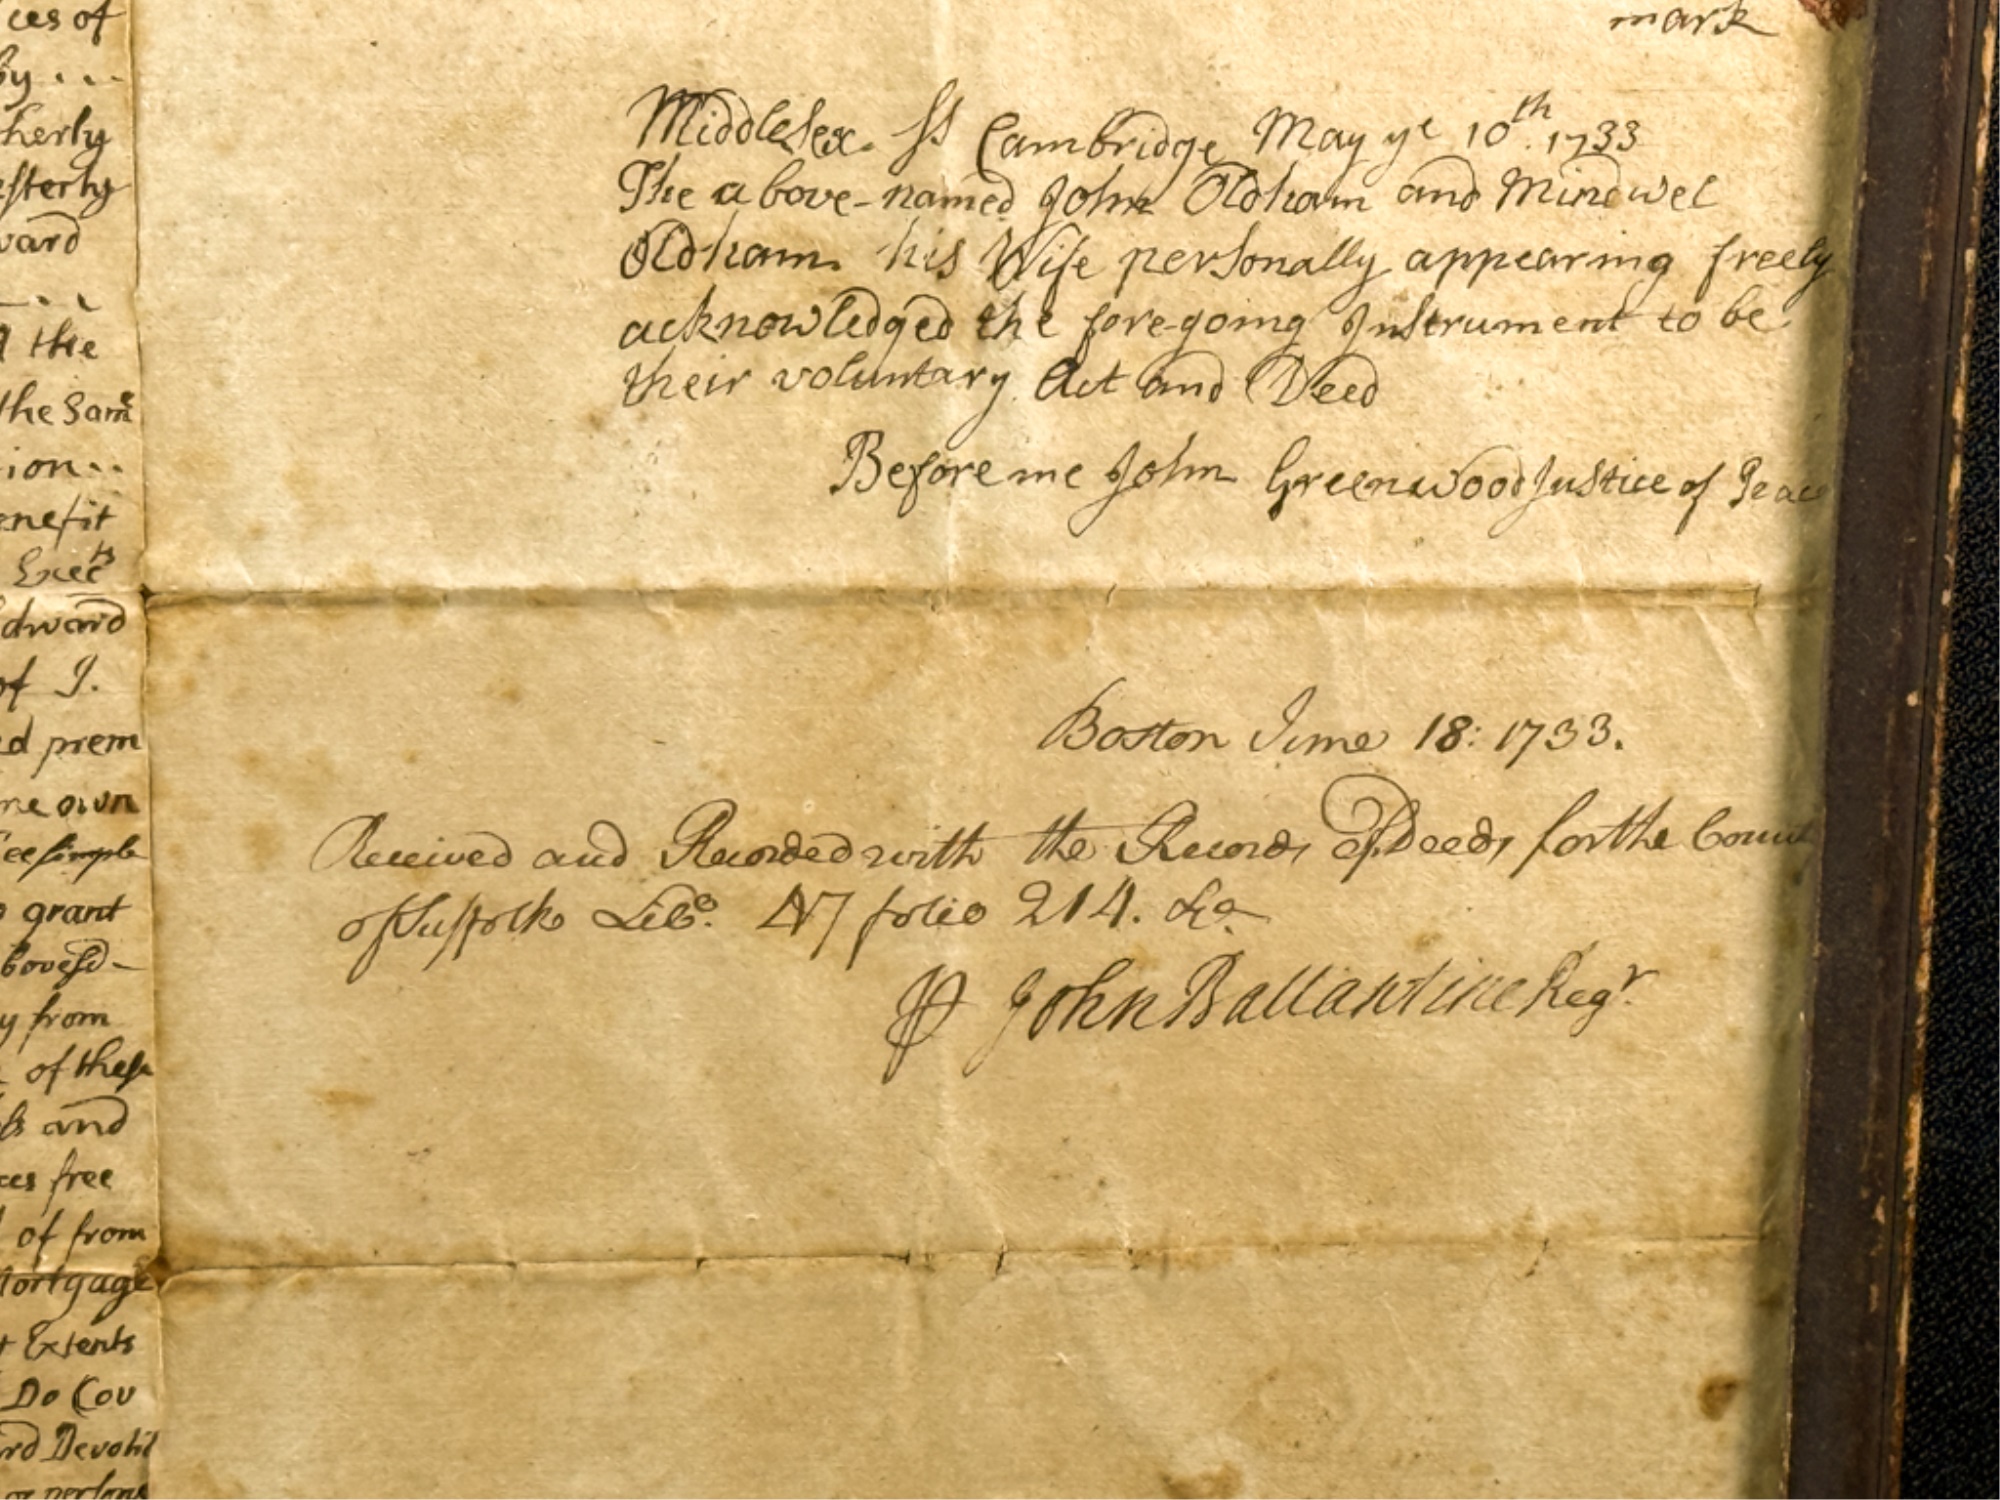 ces of
by ...
herly
esterly
ward
d the
the Same
ion..
enefit
Execrs
dward
of J.
ed prem
me own
fee simple
grant
bovesd-
y from
of these
ls and
ces free
of from
Mortgage
Extents
Do Cov
rd Devotid
or persons
mark
Middlesex. Ss Cambridge May ye 10th. 1733
The above-named John Oldham and Mindwel
Oldham his Wife personally appearing freely
acknowledged the fore-going Instrument to be
their voluntary Act and Deed
Before me John Greenwood Justice of Peace
Boston June 18: 1733.
Received and Recorded with the Records of Deeds for the Count
of Suffolk Libo. 47 folio 214. &c
P John Ballantine Regr.